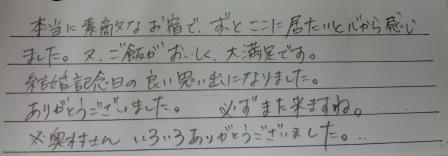 本当に素敵なお宿で、ずっとここに居たいと心から感じ
ました。又、ご飯がおいしく、大満足です。
結婚記念日の良い思い出になりました。
ありがとうございました。 必ずまた来ますね。
※奥村さん いろいろありがとうございました。